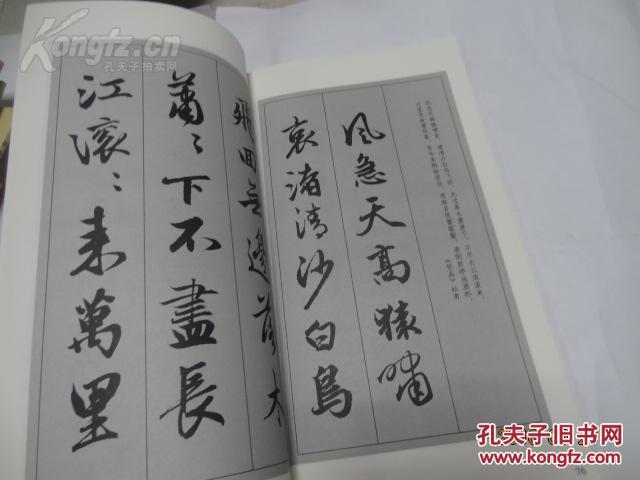 Kongfz.cn
孔夫子拍卖网
《登高》杜甫
风急天高猿嘯
哀渚清沙白鳥
飛回无邊落木
蕭々下不盡長
江滚々来萬里
76
孔夫子旧书网
www.kongfz.com